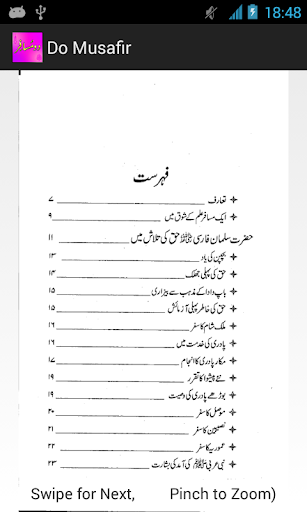 18:48
دو مسافر
Do Musafir
فہرست
تعارف ۷
ایک مسافر علم کے شوق میں ۹
حضرت سلمان فارسی ﷺ حق کی تلاش میں ۱۱
بچپن کی یاد ۱۳
حق کی پہلی جھلک ۱۴
باپ دادا کے مذہب سے بیزاری ۱۵
حق کی خاطر پہلی آزمائش ۱۵
ملک شام کا سفر ۱۶
پادری کی خدمت میں ۱۶
مکار پادری کا انجام ۱۷
نئے پیشوا کا تقرر ۱۸
بوڑھے پادری کی وصیت ۱۹
موصل کا سفر ۲۰
نصیبین کا سفر ۲۱
عموریہ کا سفر ۲۲
نبی عربی ﷺ کی آمد کی بشارت ۲۳
Swipe for Next, Pinch to Zoom)